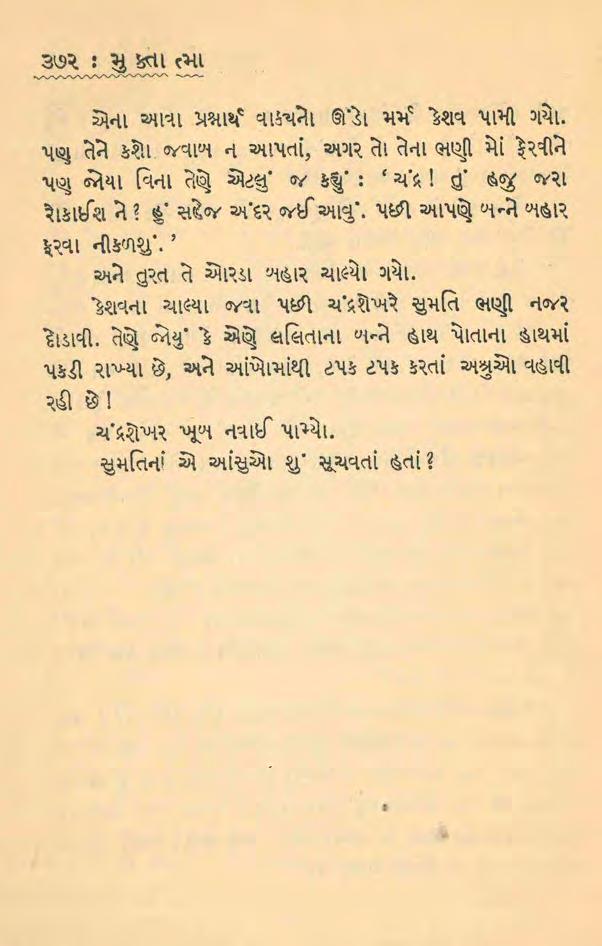 ૩૭૨ : મુ ક્તા ત્મા
એના આવા પ્રશ્નાર્થ વાક્યનો ઊંડો મર્મ કેશવ પામી ગયો.
પણ તેને કશો જવાબ ન આપતાં, અગર તો તેના ભણી મોં ફેરવીને
પણ જોયા વિના તેણે એટલું જ કહ્યું : ‘ ચંદ્ર ! તું હજુ જરા
રોકાઈશ ને ? હું સહેજ અંદર જઈ આવું. પછી આપણે બન્ને બહાર
ફરવા નીકળશું. ’
અને તુરત તે ઓરડા બહાર ચાલ્યો ગયો.
કેશવના ચાલ્યા જવા પછી ચંદ્રશેખરે સુમતિ ભણી નજર
દોડાવી. તેણે જોયું કે એણે લલિતાના બન્ને હાથ પોતાના હાથમાં
પકડી રાખ્યા છે, અને આંખોમાંથી ટપક ટપક કરતાં અશ્રુઓ વહાવી
રહી છે !
ચંદ્રશેખર ખૂબ નવાઈ પામ્યો.
સુમતિનાં એ આંસુઓ શું સૂચવતાં હતાં ?